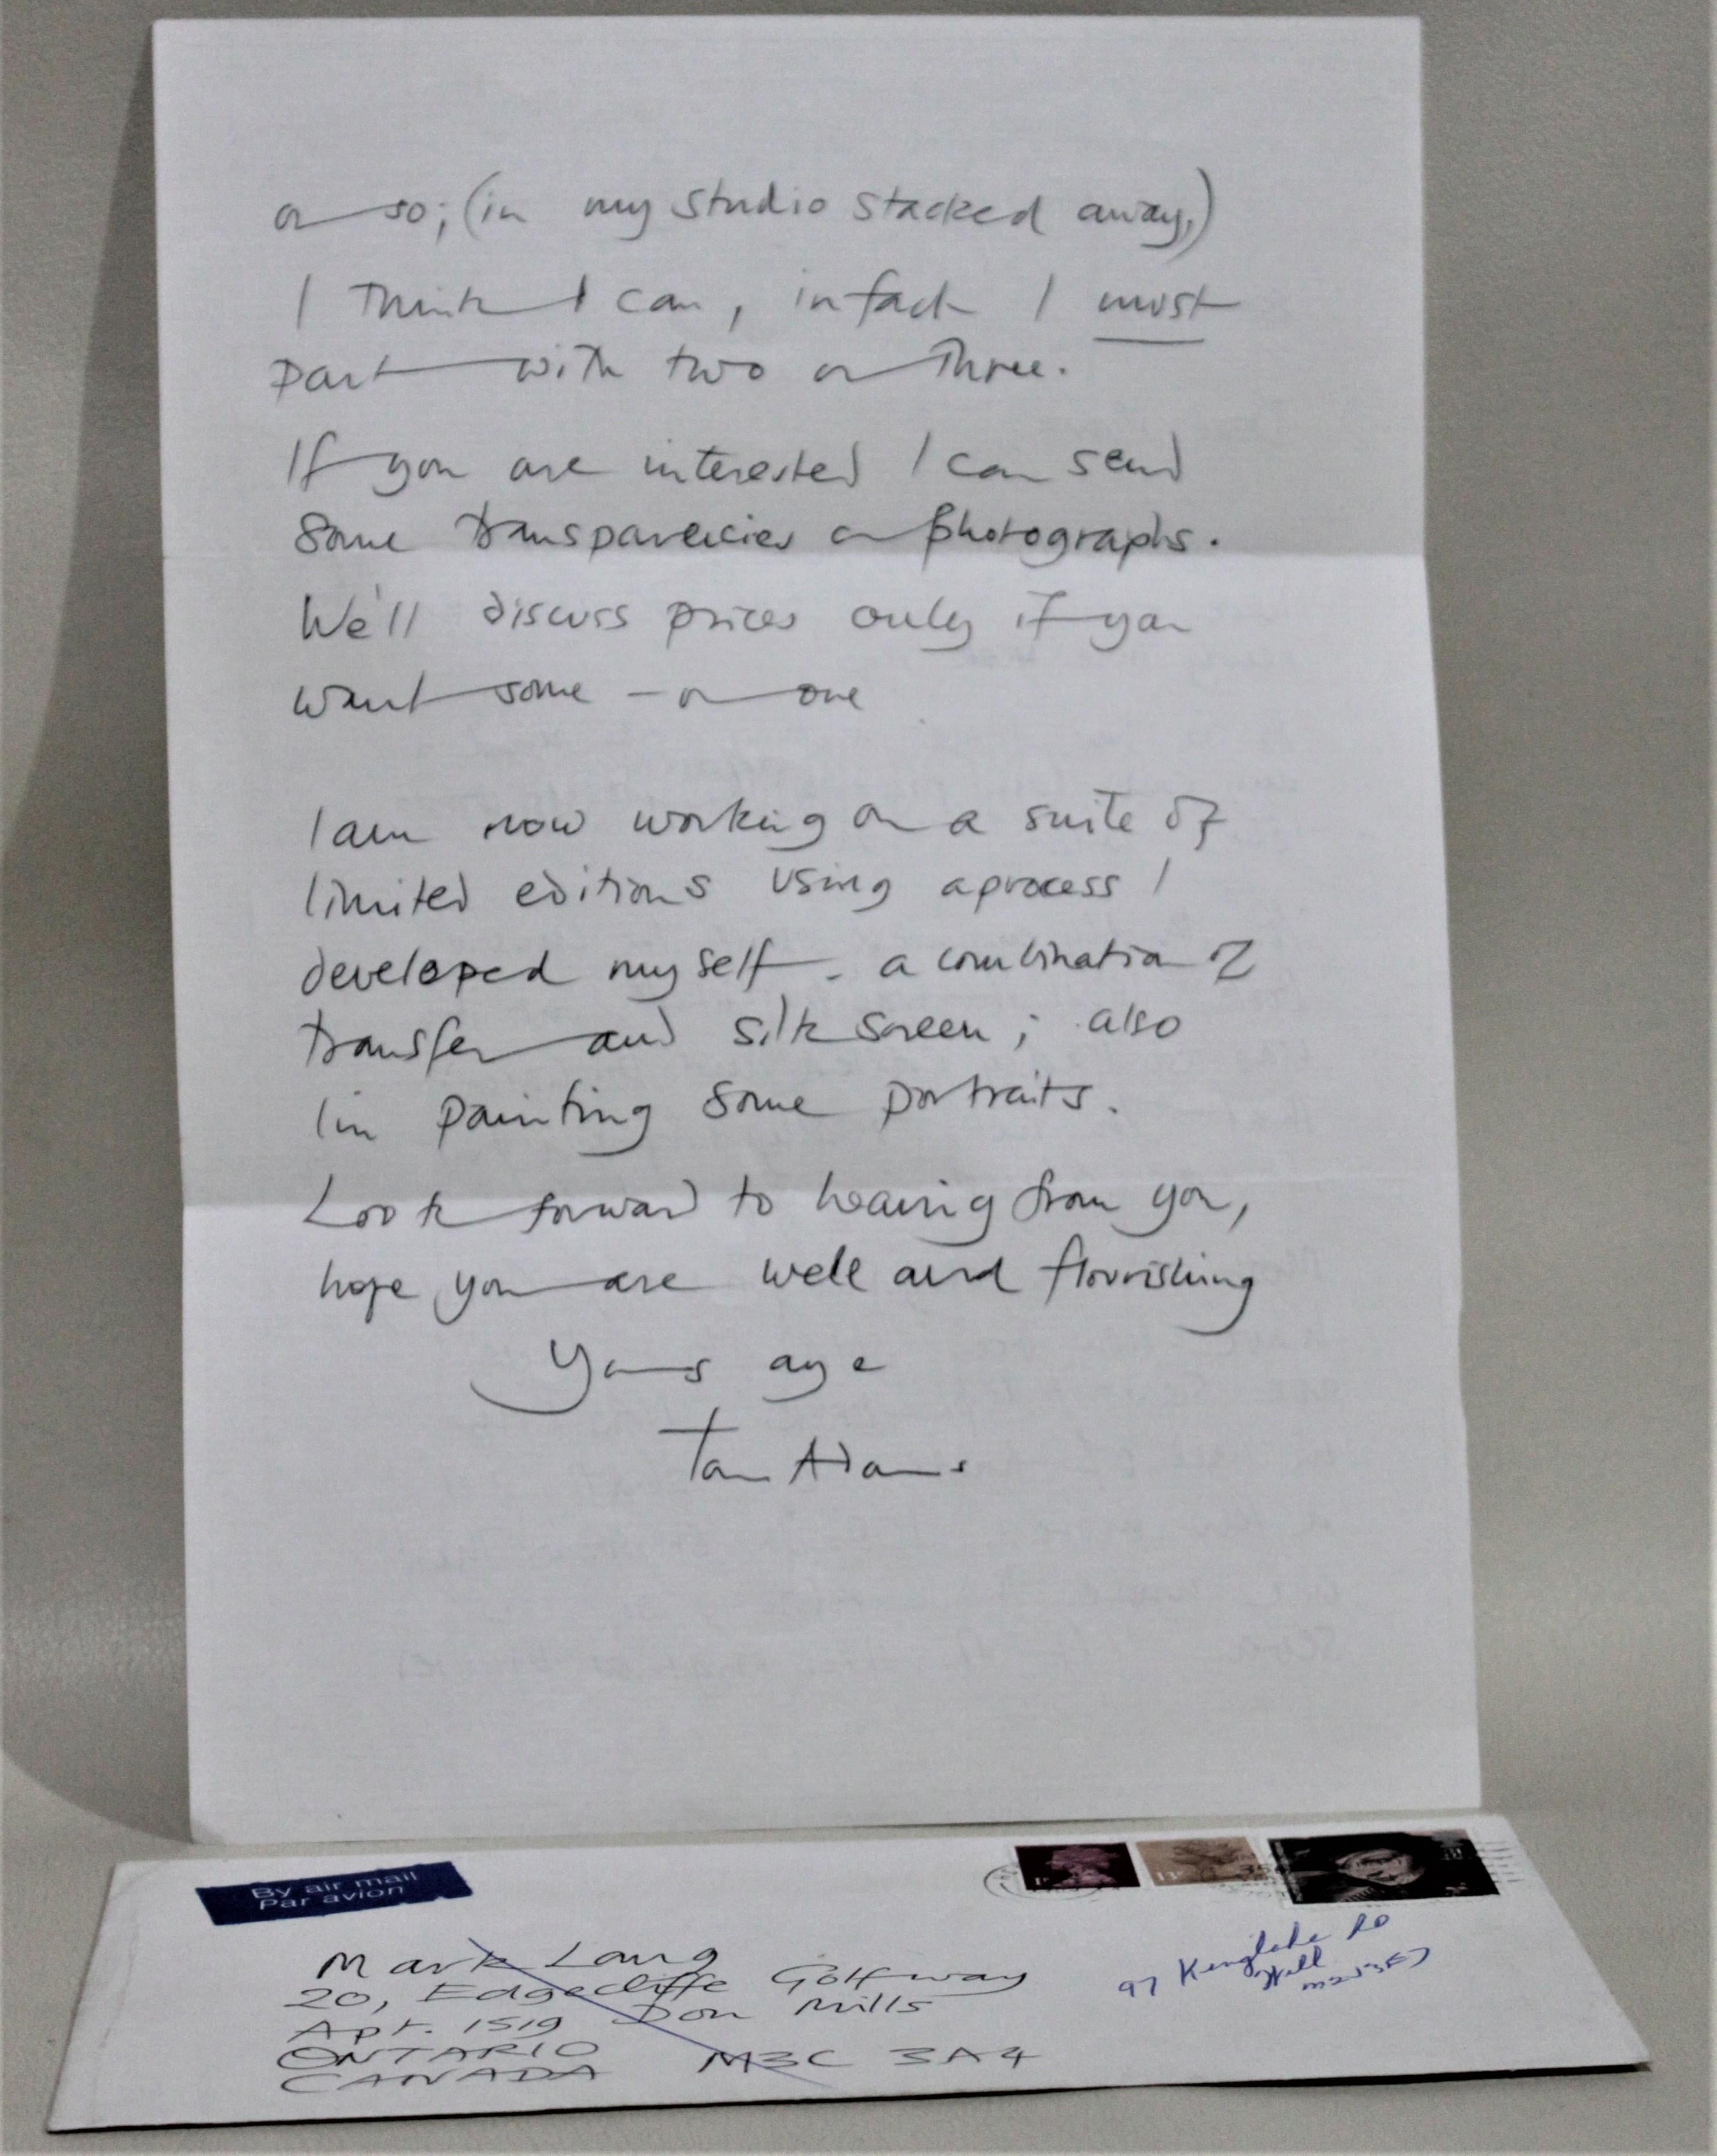 or so; (in my studio stacked away,)
I think I can, infact I must
part with two or three.
If you are interested I can send
some transparecies or photographs.
We'll discuss prices only if you
want some - or one
I am now working on a suite of
limited editions using a process I
developed myself - a combination of
transfer and silk screen; also
I'm painting some portraits.
Look forward to hearing from you,
hope you are well and flourishing
Yours aye
Tom Adams
By air mail
Par avion
Mark Lang
20, Edgecliffe Golfway
Apt. 1519 Don Mills
ONTARIO
CANADA M3C 3A4
97 Kenglake RD
Will